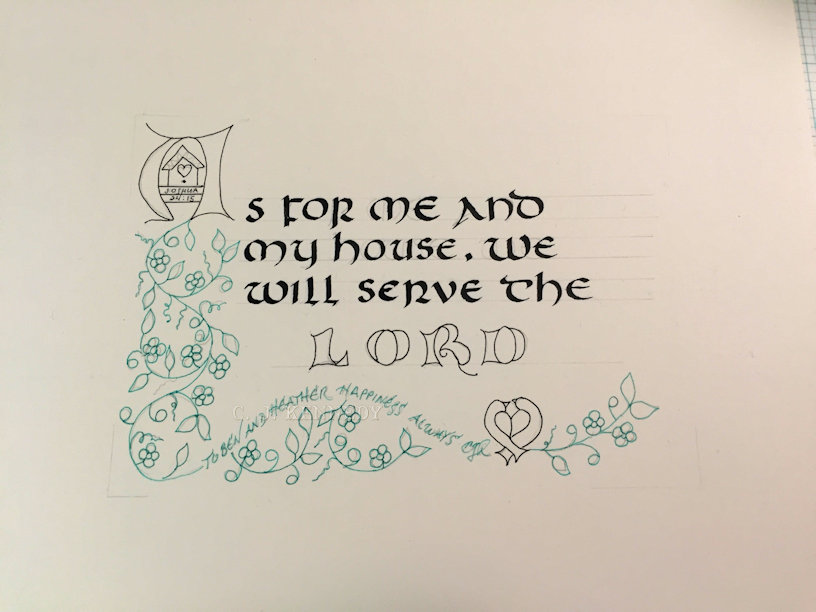 A
JOSHUA
24:15
s for me and
my house, we
will serve the
LORD
TO BEN AND HEATHER HAPPINESS ALWAYS